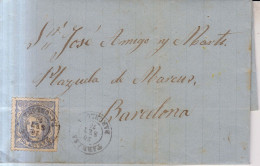 Sr. Dn. José Amigo y Marti.
Plazuela de Marcus.
Barcelona